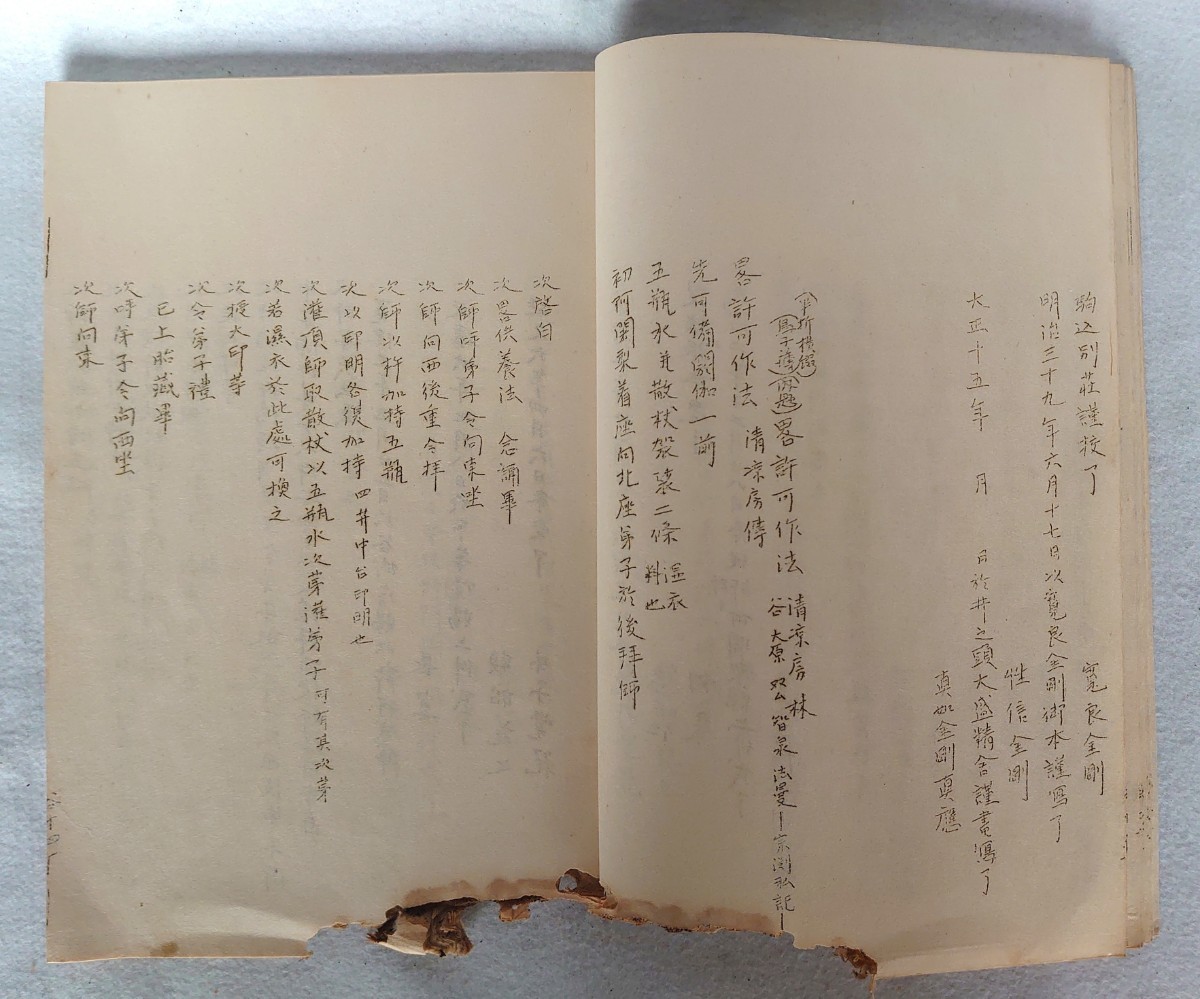 駒込別荘謹挍了
寛良金剛
明治三十九年六月十七日以寛良金剛御本謹寫了
性信金剛
大正十五年　月　日於井之頭大盛精舎謹書寫了
真如金剛真應
畧許可作法 清凉房林
谷大原双厶智泉法曼ー宗渕私記ー
畧許可作法　清凉房傳
先可備閼伽一前
五瓶水并散杖袈裟二條 湿衣料也
初阿闍梨着座向北座弟子於後拜師
次啓白
次畧供養法　念誦畢
次師呼弟子令向東坐
次師向西後重令拝
次師以杵加持五瓶
次以印明各復加持 四并中台印明也
次灌頂師取散杖以五瓶水次第灌弟子 可有其次第
次若濕衣於此處可換之
次授大印等
次令弟子禮
已上胎藏畢
次呼弟子令向西坐
次師向東